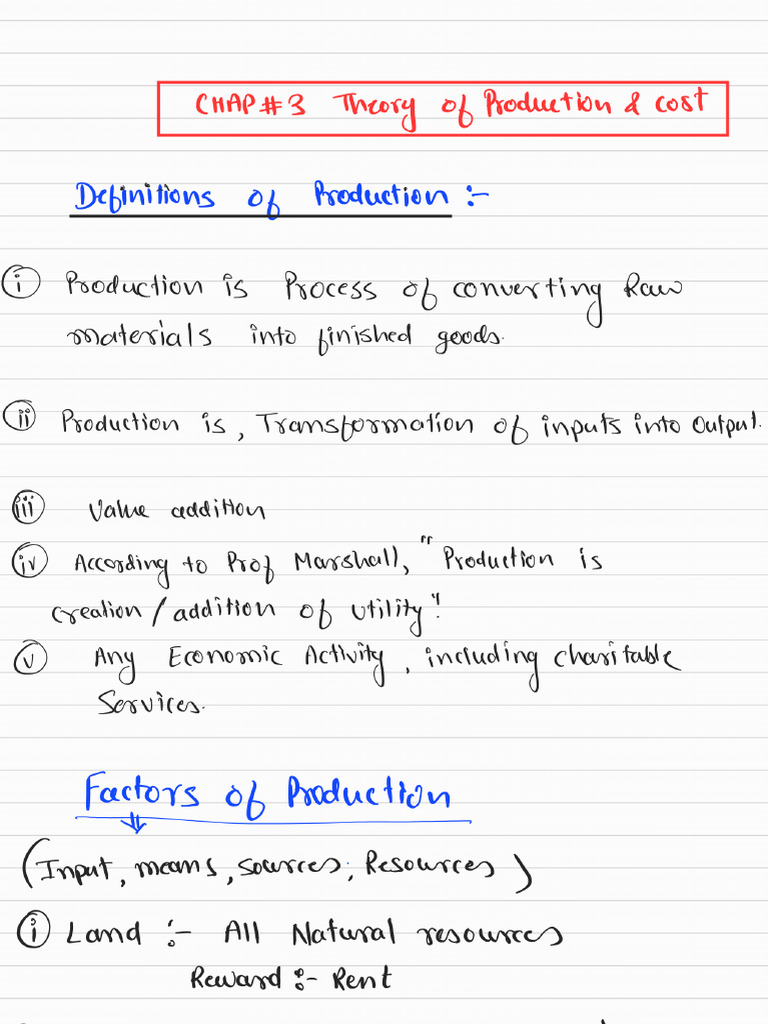 CHAP#3 Theory of Production & cost
Definitions of Production :-
i Production is Process of converting Raw
materials into finished goods.
ii Production is, Transformation of inputs into Output.
iii Value addition
iv According to Prof Marshall, "Production is
creation/addition of utility".
v Any Economic Activity, including charitable
Services.
Factors of Production
(Input, means, sources, Resources)
i Land :- All Natural resources
Reward :- Rent